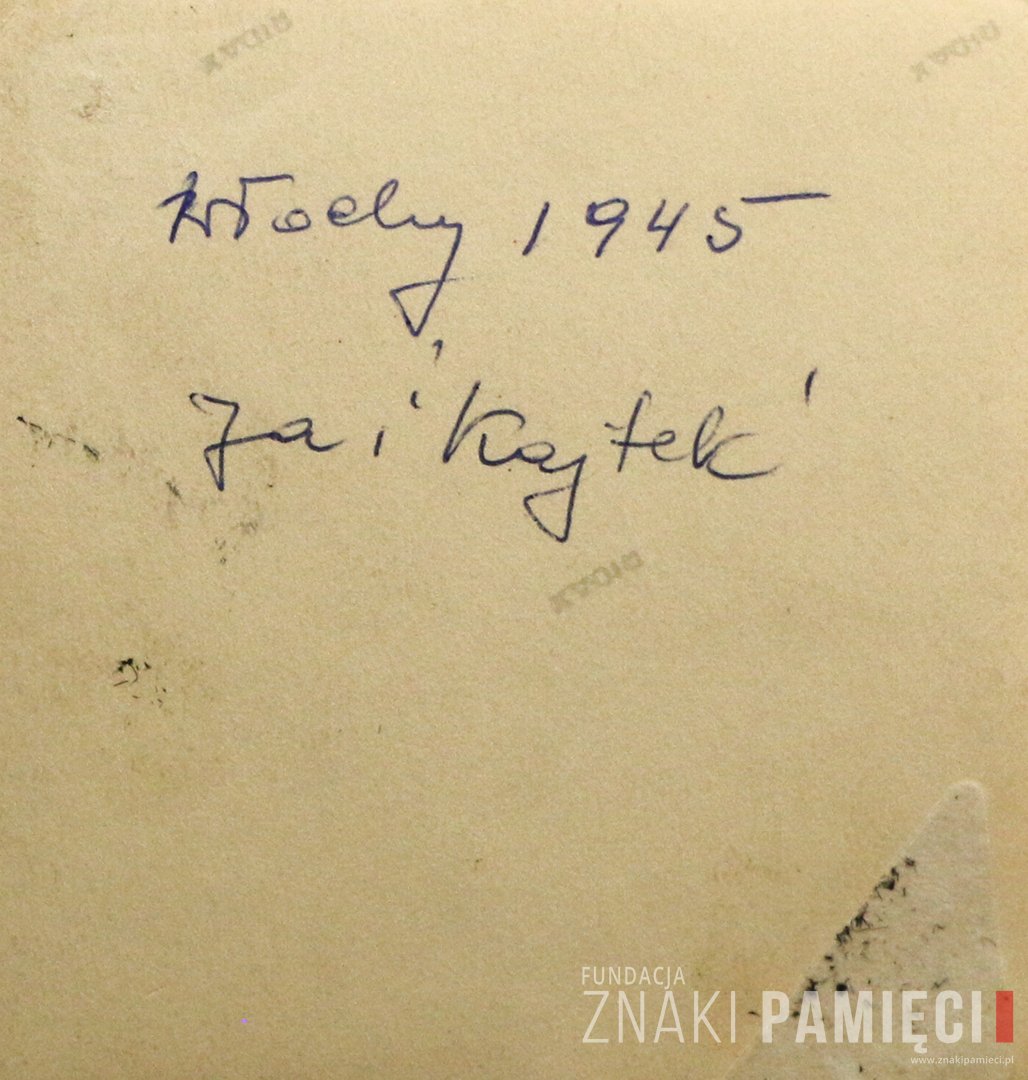 Włochy 1945
Ja i "Kajtek"
FUNDACJA
ZNAKI PAMIĘCI
www.znakipamieci.pl